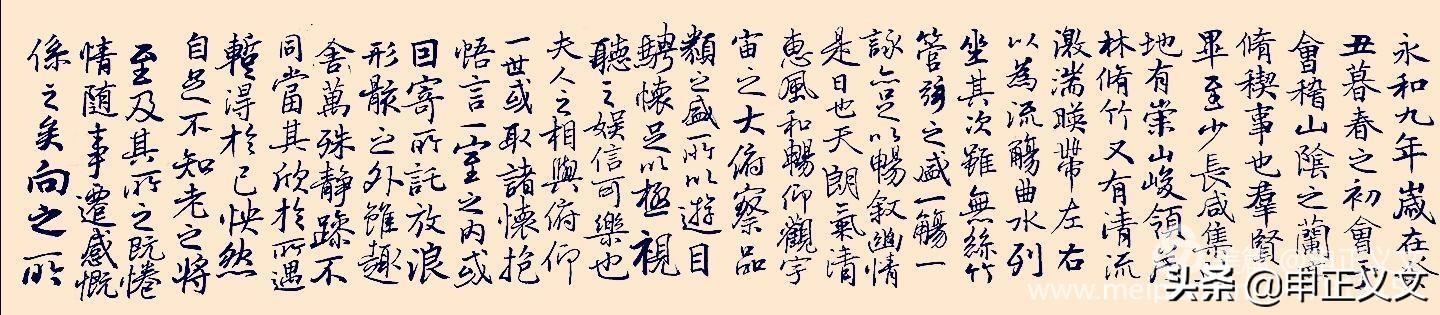 永和九年歲在癸
丑暮春之初會
會稽山陰之蘭
脩稧事也羣賢
畢至少長咸集此
地有崇山峻領
林脩竹又有清流
激湍暎帶左右
以為流觴曲水列
坐其次雖無絲竹
管弦之盛一觴一
詠亦足以暢敘幽情
是日也天朗氣清
惠風和暢仰觀宇
宙之大俯察品
類之盛所以遊目
騁懷足以極視
聽之娛信可樂也
夫人之相與俯仰
一世或取諸懷抱
悟言一室之內或
因寄所託放浪
形骸之外雖趣
舍萬殊靜躁不
同當其欣於所遇
暫得於己怏然
自足不知老之將
至及其所之既惓
情随事遷感慨
係之矣向之所
头条 @申正义文